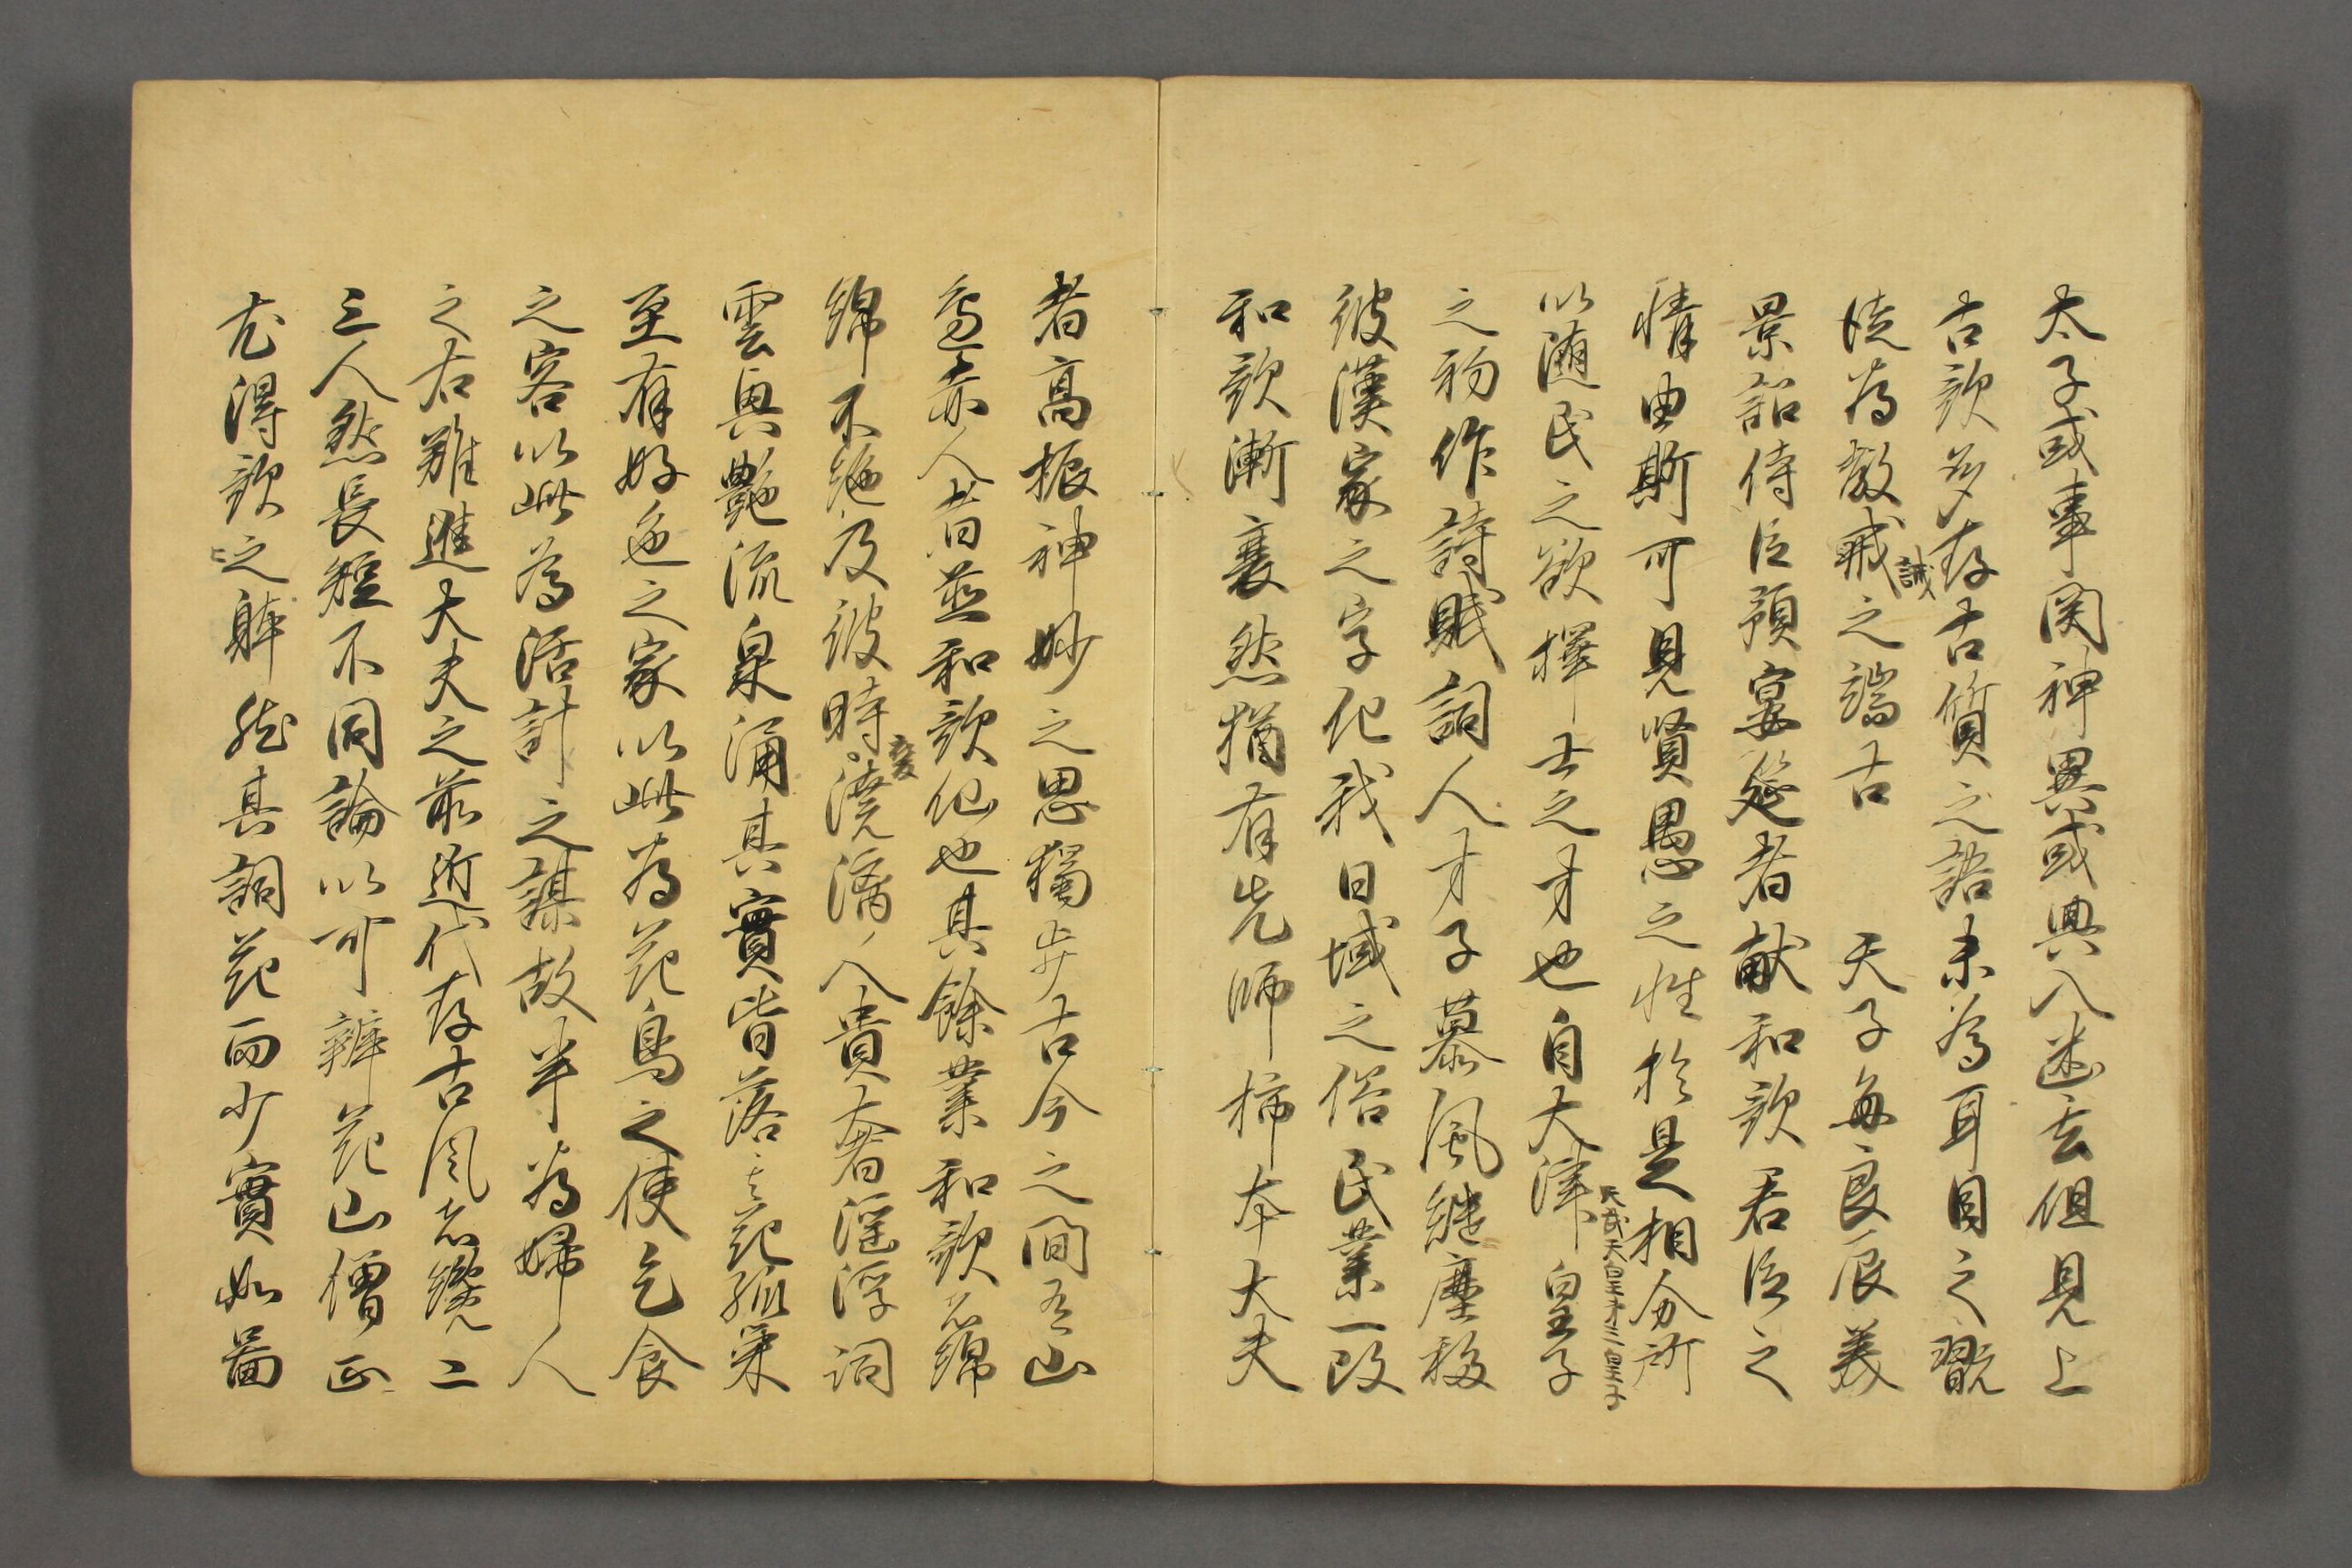 太子或事関神異或興入幽玄但見上
古歌多存古質之語未為耳目之翫
徒為教戒之端古　天子毎良辰美
誡
景詔侍臣預宴筵者献和歌君臣之
情由斯可見賢愚之性於是相分所
以随民之欲択士之才也自大津皇子
天武天皇第三皇子
之初作詩賦詞人才子慕風継塵移
彼漢家之字化我日域之俗民業一改
和歌漸衰然猶有先師柿本大夫
者高振神妙之思獨歩古今之間有山
邊赤人者並和歌仙也其餘業和歌者綿
綿不絶及彼時澆漓人貴奢淫浮詞
変
雲興艶流泉涌其實皆落其花孤栄
至有好色之家以此為花鳥之使乞食
之客以此為活計之謀故半為婦人
之右難進大夫之前近代存古風者纔二
三人然長短不同論以可辨花山僧正
尤得歌之躰然其詞花而少實如圖